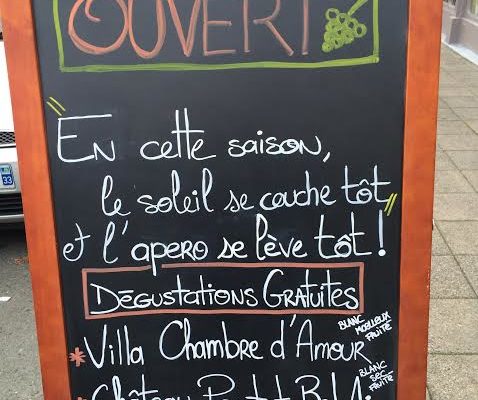 OUVERT
33
"En cette saison,
le soleil se couche tôt
et l'apero se lève tôt!"
DÉGUSTATIONS GRATUITES
BLANC
MOELLEUX
FRUITÉ
* Villa Chambre d'Amour
BLANC
SEC
FRUITÉ
* Château